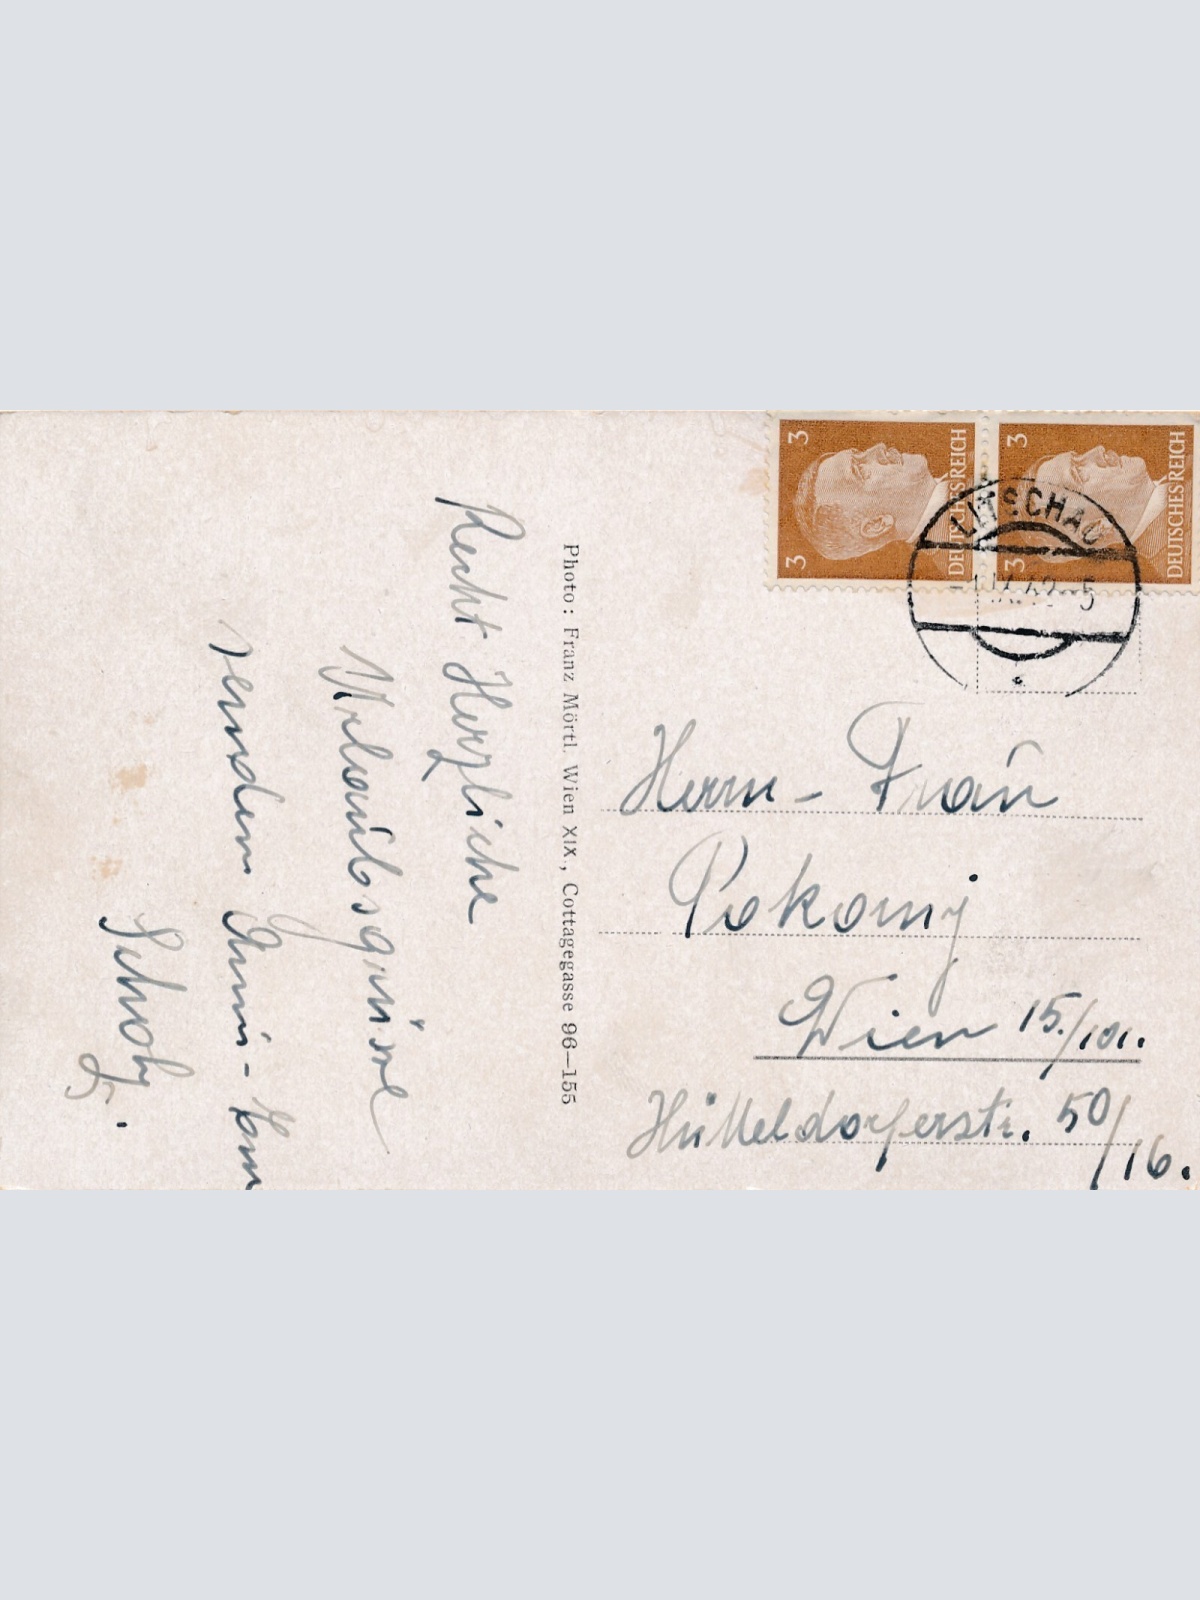 Recht Herzliche
Urlaubsgrüsse
senden
Photo: Franz Mörtl. Wien XIX., Cottagegasse 96—155
3 3 DEUTSCHES REICH
3 3 DEUTSCHES REICH
LITSCHAU
Herrn - Frau
Pokorny
Wien 15./101.
Hütteldorferstr. 50/
16.